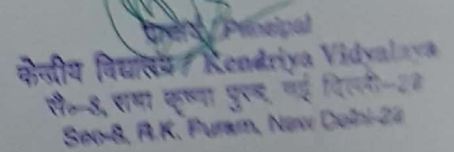 प्राचार्य / Principal
केन्द्रीय विद्यालय / Kendriya Vidyalaya
सै०-8, रामा कृष्णा पुरम, नई दिल्ली-22
Sec-8, R.K. Puram, New Delhi-22